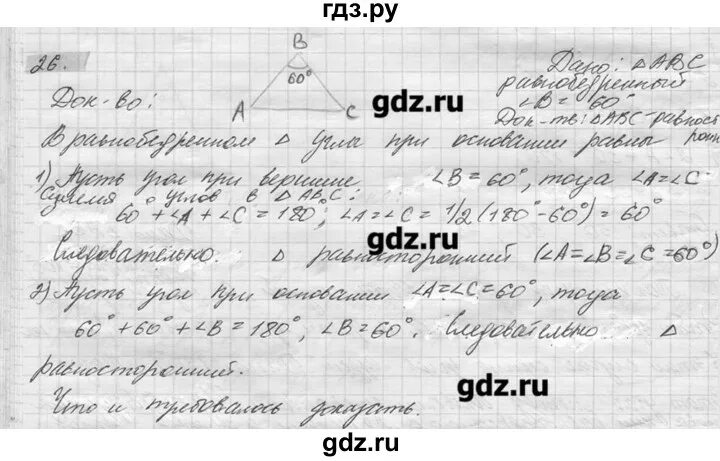 гдз.ру
26.
B
60°
A
C
Дано: △ABC
равнобедренный
∠B = 60°
Док-ть: △ABC-равност
Док-во:
gdz.ru
В равнобедренном △ углы при основании равны
1) Пусть угол при вершине ∠B = 60°, тогда ∠A=∠C
Сумма углов в △ABC:
60° + ∠A + ∠C = 180°; ∠A = ∠C = 1/2(180°-60°) = 60°
gdz.ru
Следовательно. △ равносторонний (∠A=∠B=∠C=60°)
2) Пусть угол при основании ∠A=∠C=60°, тогда
60° + 60° + ∠B = 180°, ∠B = 60°. Следовательно △
равносторонний.
gdz.ru
Что и требовалось доказать.
gdz.ru